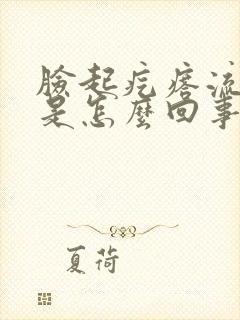 臉起疙瘩流
是怎麼回事
夏荷